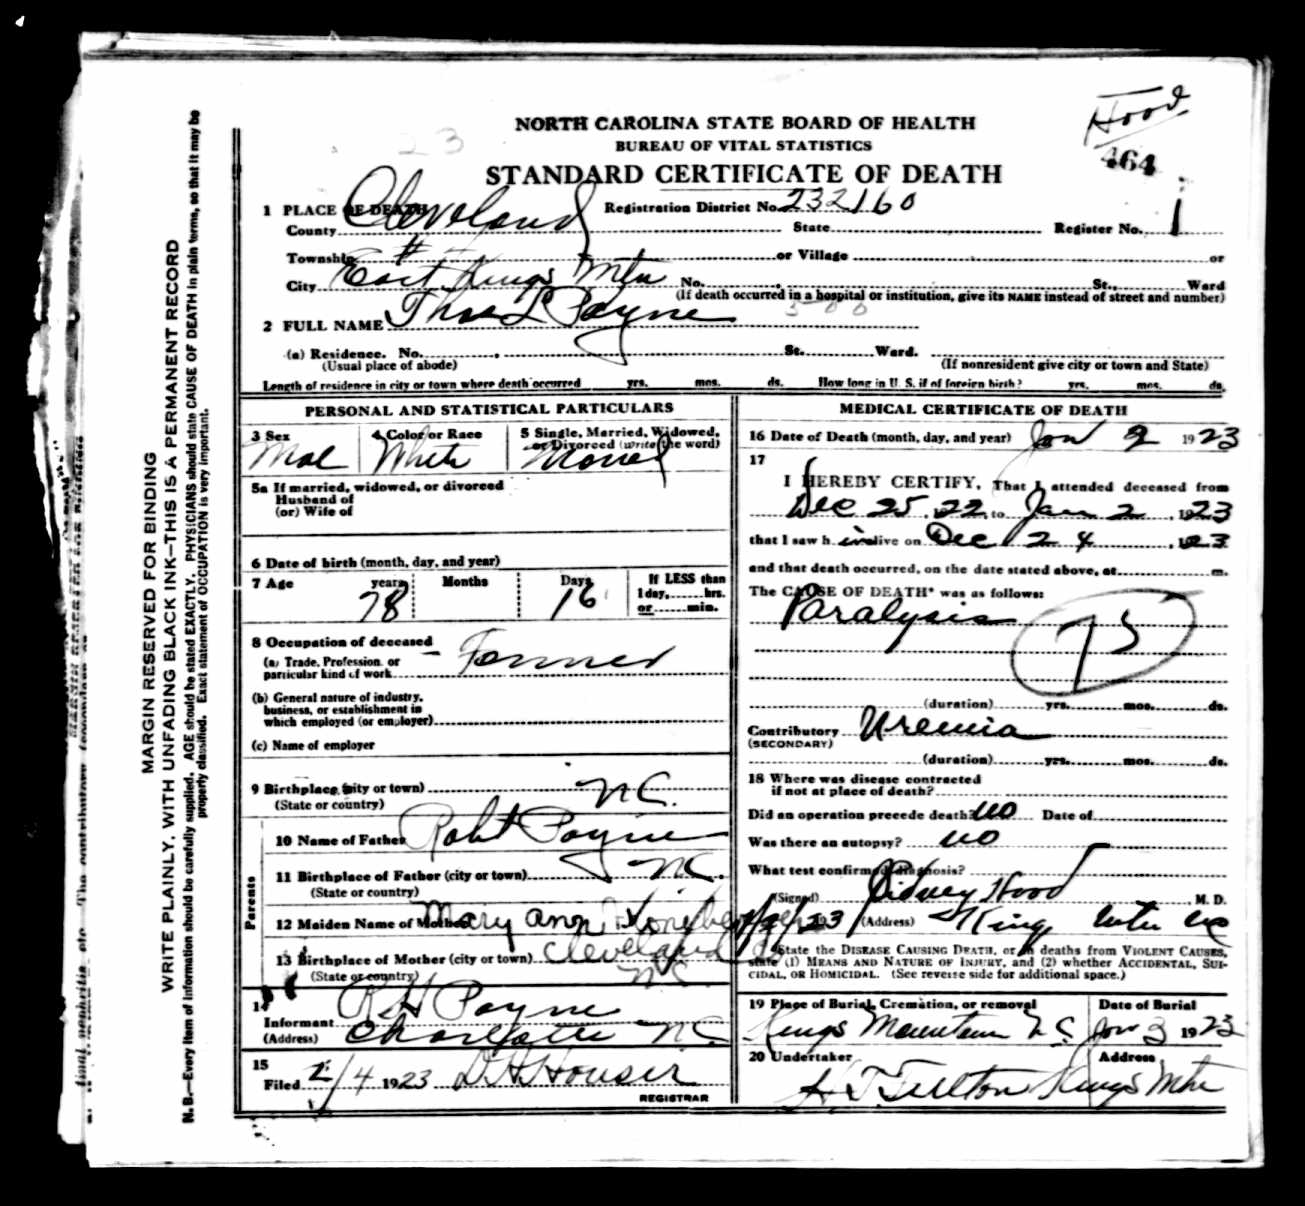 Hood
464
NORTH CAROLINA STATE BOARD OF HEALTH
BUREAU OF VITAL STATISTICS
STANDARD CERTIFICATE OF DEATH
23
1 PLACE OF DEATH
County Cleveland Registration District No. 232160 State Register No. 1
Township # 4 or Village or
City East Kings Mtn No. St., Ward
(If death occurred in a hospital or institution, give its NAME instead of street and number)
2 FULL NAME Thos L Payne 500
(a) Residence. No. St. Ward.
(Usual place of abode) (If nonresident give city or town and State)
Length of residence in city or town where death occurred yrs. mos. ds. How long in U. S. if of foreign birth? yrs. mos. ds.
PERSONAL AND STATISTICAL PARTICULARS
3 Sex 4 Color or Race 5 Single, Married, Widowed, or Divorced (write the word)
Mal White Maried
5a If married, widowed, or divorced
Husband of
(or) Wife of
6 Date of birth (month, day, and year)
7 Age years Months Days If LESS than
1 day, hrs.
78 16 or min.
8 Occupation of deceased
(a) Trade, Profession, or
particular kind of work Farmer
(b) General nature of industry,
business, or establishment in
which employed (or employer)
(c) Name of employer
9 Birthplace (city or town) N C.
(State or country)
Parents
10 Name of Father Robt Payne
11 Birthplace of Father (city or town) N C.
(State or country)
12 Maiden Name of Mother Mary Ann
13 Birthplace of Mother (city or town) Cleveland
(State or country) N C.
14
Informant R H Payne
(Address) Charlotte N C.
15
Filed 1923 D H Houser
REGISTRAR
MEDICAL CERTIFICATE OF DEATH
16 Date of Death (month, day, and year) Jan 2 1923
17
I HEREBY CERTIFY, That I attended deceased from
Dec 25, 22, to Jan 2, 1923
that I saw h im alive on Dec 24, 1923
and that death occurred, on the date stated above, at m.
The CAUSE OF DEATH* was as follows:
Paralysis
75
(duration) yrs. mos. ds.
Contributory Uremia
(SECONDARY)
(duration) yrs. mos. ds.
18 Where was disease contracted
if not at place of death?
Did an operation precede death? no Date of
Was there an autopsy? no
What test confirmed diagnosis?
(Signed) Sidney Hood M. D.
23 (Address) King Mtn NC
*State the DISEASE CAUSING DEATH, or in deaths from VIOLENT CAUSES,
state (1) MEANS AND NATURE OF INJURY, and (2) whether ACCIDENTAL, SUI-
CIDAL, OR HOMICIDAL. (See reverse side for additional space.)
19 Place of Burial, Cremation, or removal Date of Burial
Kings Mountain N.C. Jan 3 1923
20 Undertaker Address
Kings Mtn
MARGIN RESERVED FOR BINDING
WRITE PLAINLY, WITH UNFADING BLACK INK—THIS IS A PERMANENT RECORD
N. B.—Every item of information should be carefully supplied. AGE should be stated EXACTLY. PHYSICIANS should state CAUSE OF DEATH in plain terms, so that it may be
properly classified. Exact statement of OCCUPATION is very important.